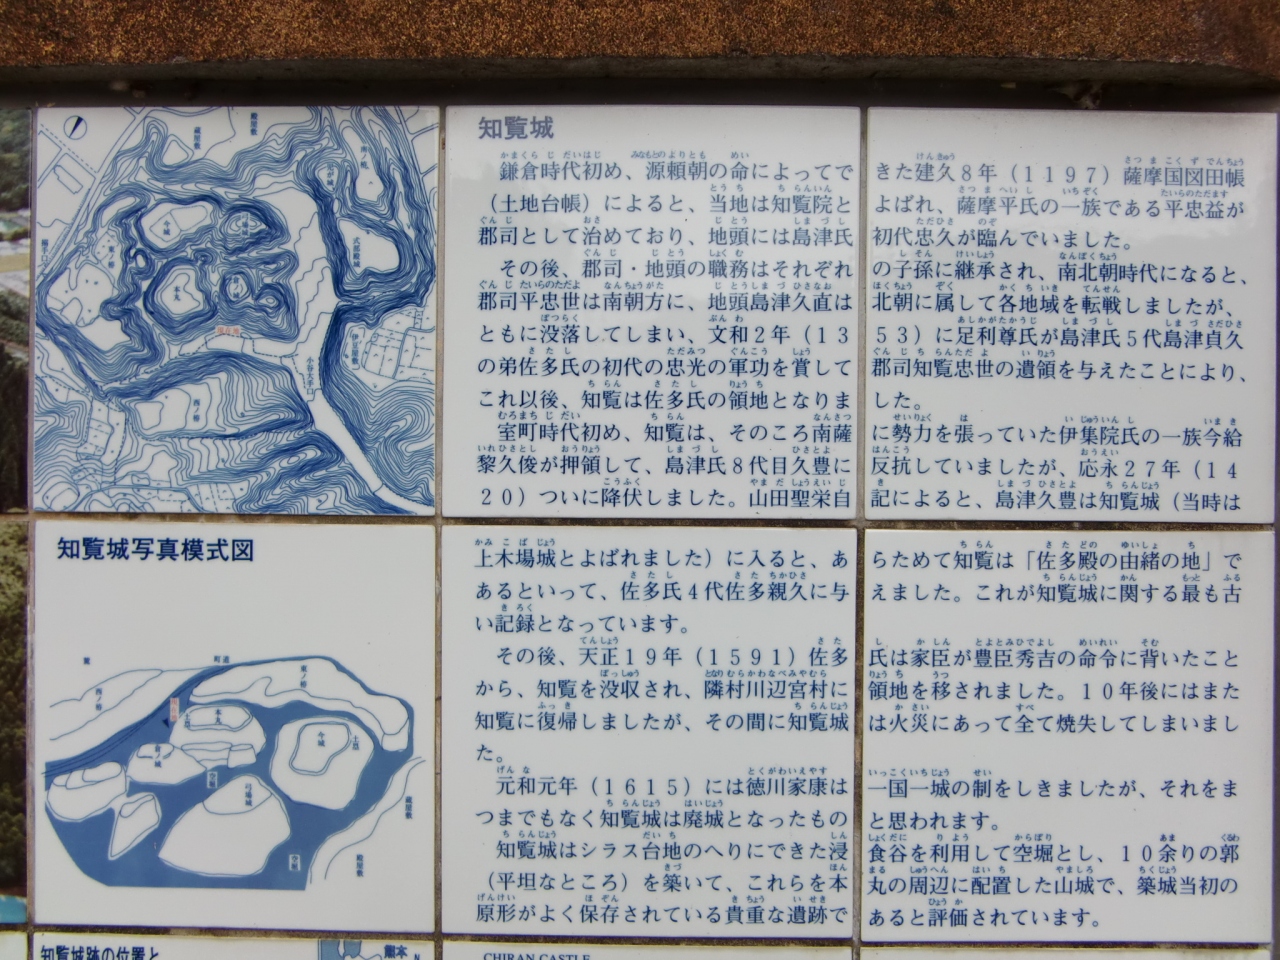 知覧城
鎌倉時代初め、源頼朝の命によってできた建久8年（1197）薩摩国図田帳
（土地台帳）によると、当地は知覧院とよばれ、薩摩平氏の一族である平忠益が
郡司として治めており、地頭には島津氏初代忠久が臨んでいました。
その後、郡司・地頭の職務はそれぞれの子孫に継承され、南北朝時代になると、
郡司平忠世は南朝方に、地頭島津久直は北朝に属して各地域を転戦しましたが、
ともに没落してしまい、文和2年（1353）に足利尊氏が島津氏5代島津貞久
の弟佐多氏の初代の忠光の軍功を賞して郡司知覧忠世の遺領を与えたことにより、
これ以後、知覧は佐多氏の領地となりました。
室町時代初め、知覧は、そのころ南薩に勢力を張っていた伊集院氏の一族今給
黎久俊が押領して、島津氏8代目久豊に反抗していましたが、応永27年（14
20）ついに降伏しました。山田聖栄自記によると、島津久豊は知覧城（当時は
上木場城とよばれました）に入ると、あらためて知覧は「佐多殿の由緒の地」で
あるといって、佐多氏4代佐多親久に与えました。これが知覧城に関する最も古
い記録となっています。
その後、天正19年（1591）佐多氏は家臣が豊臣秀吉の命令に背いたこと
から、知覧を没収され、隣村川辺宮村に領地を移されました。10年後にはまた
知覧に復帰しましたが、その間に知覧城は火災にあって全て焼失してしまいまし
た。
元和元年（1615）には徳川家康は一国一城の制をしきましたが、それをま
つまでもなく知覧城は廃城となったものと思われます。
知覧城はシラス台地のへりにできた浸食谷を利用して空堀とし、10余りの郭
（平坦なところ）を築いて、これらを本丸の周辺に配置した山城で、築城当初の
原形がよく保存されている貴重な遺跡であると評価されています。
蔵屋敷
殿屋敷
式部殿城
今城
本丸
西ノ栫
伊豆屋敷
知覧城写真模式図
町道
東ノ栫
西ノ栫
本丸
蔵ノ城
今城
弓場城
空堀
土塁
空堀
蔵屋敷
殿屋敷
知覧城跡の位置と
熊本
N
CHIRAN CASTLE